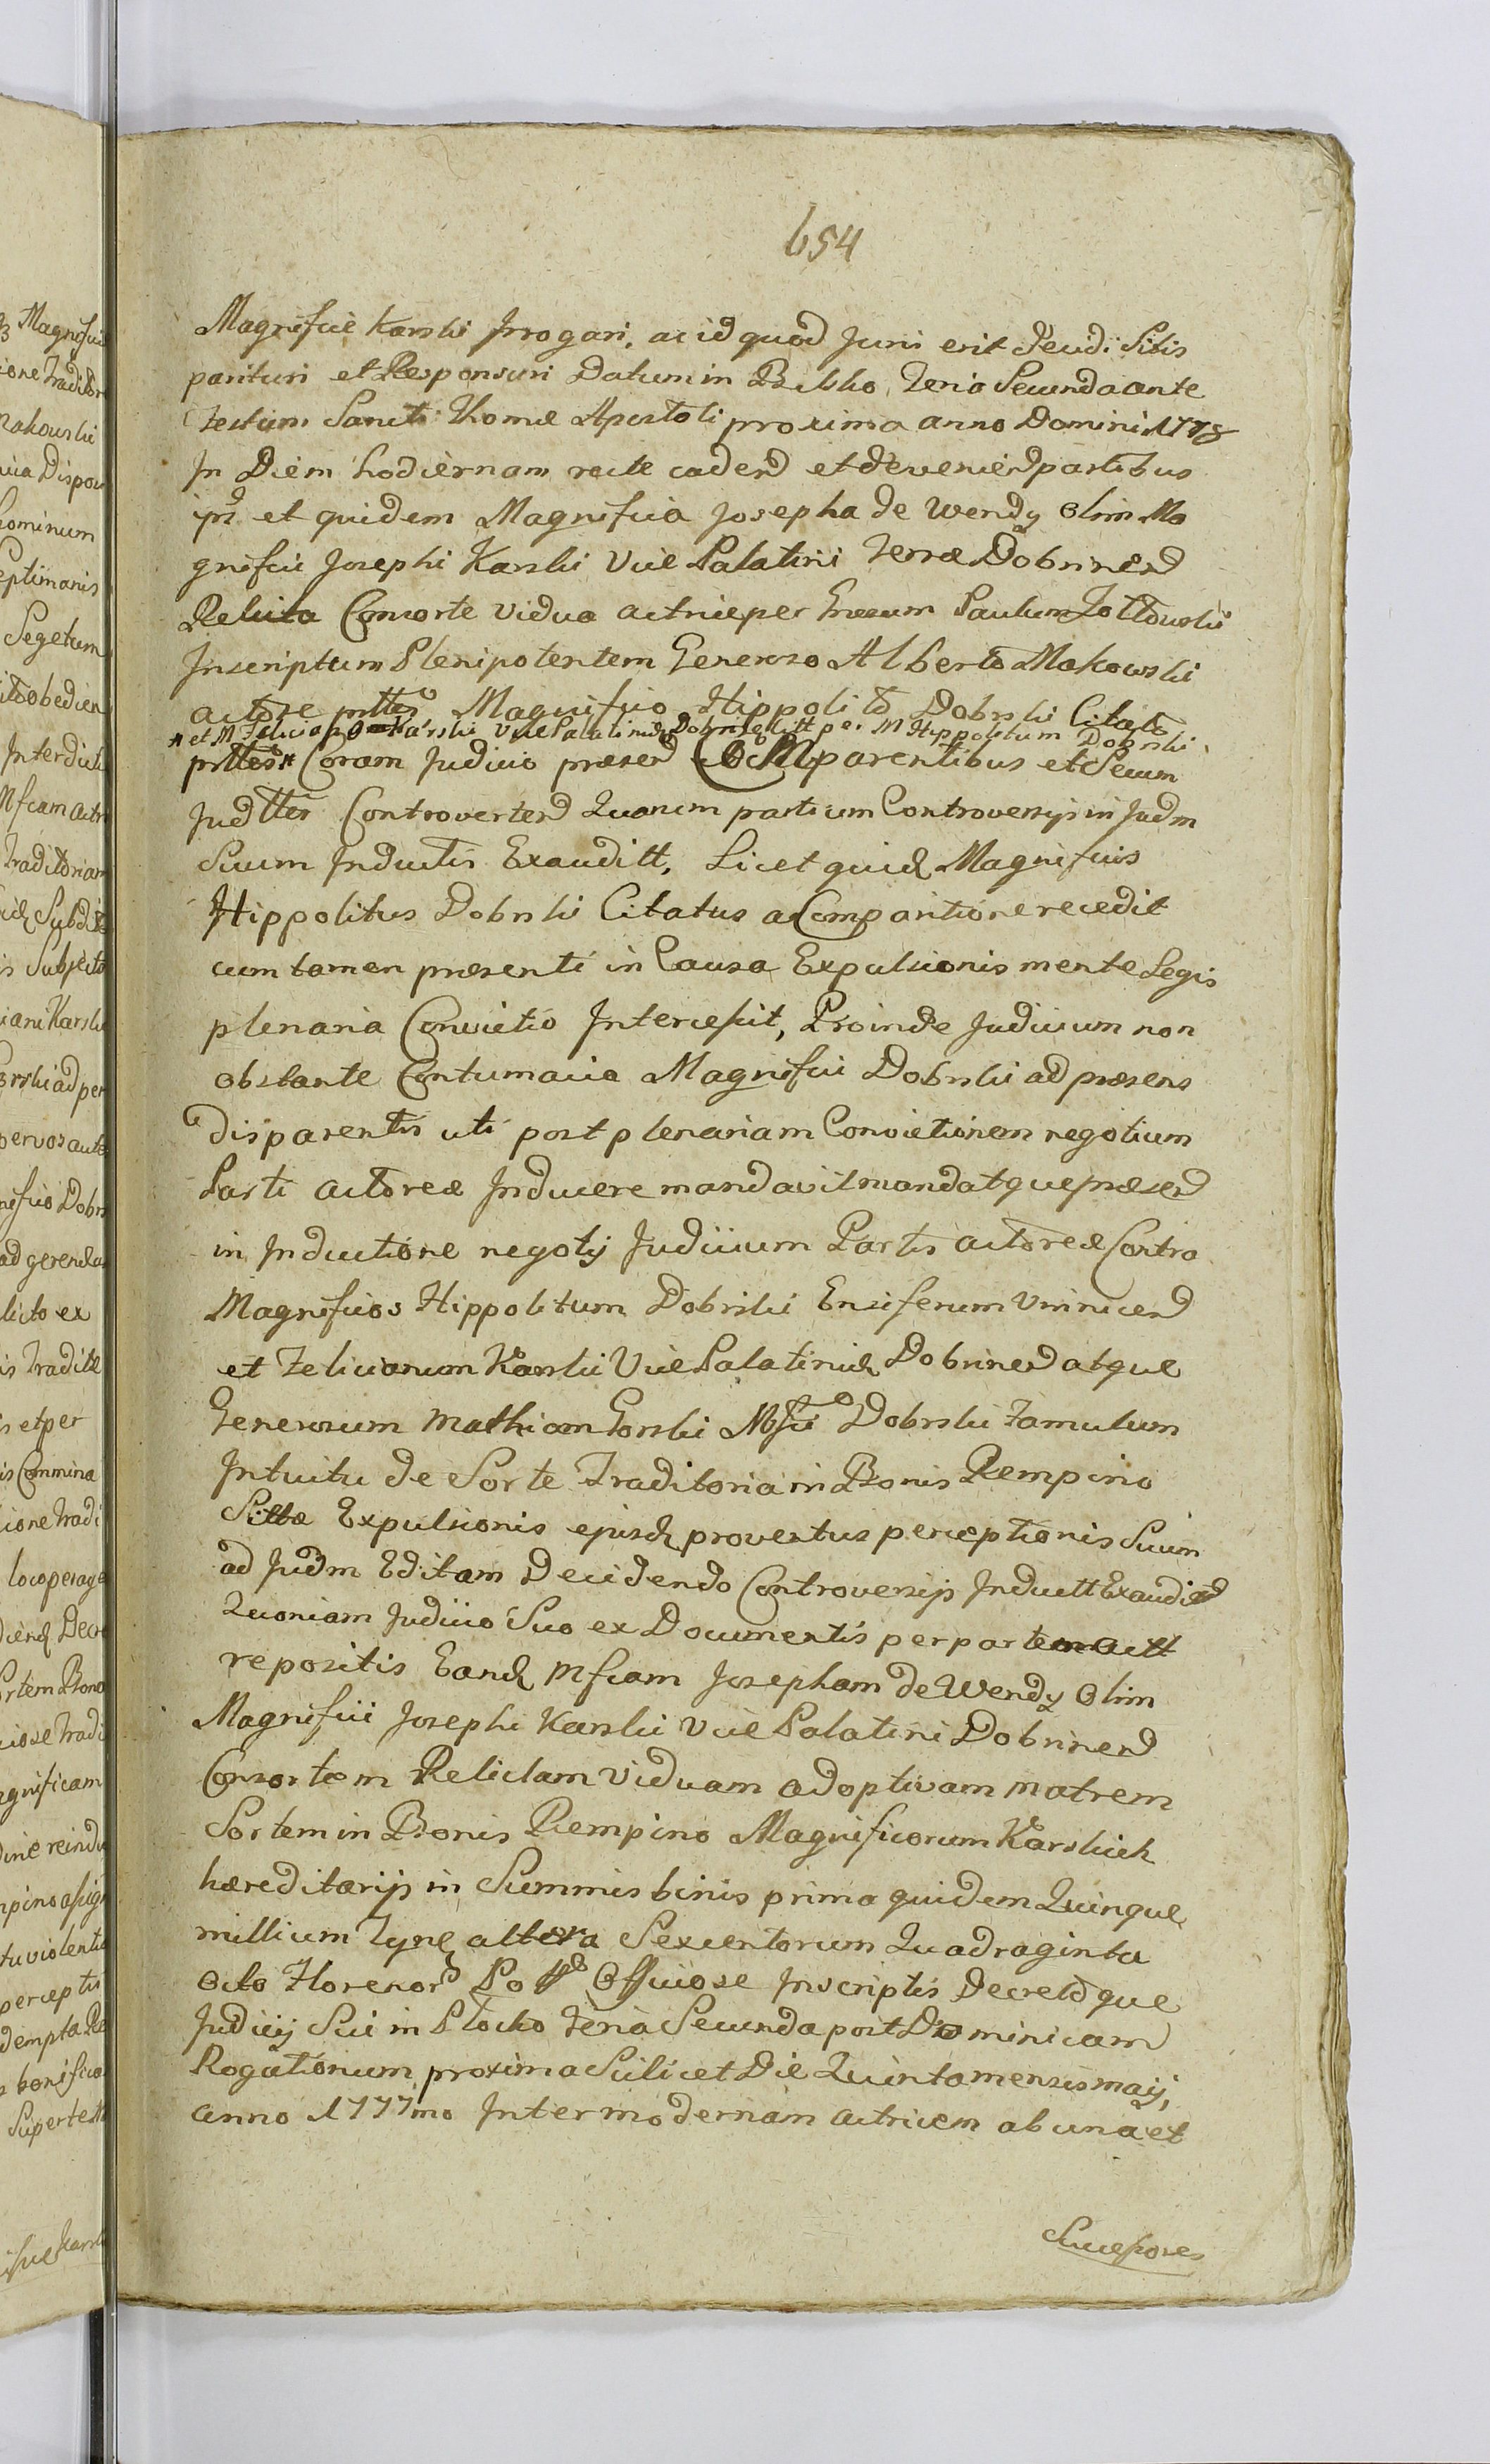 654
Magnificae Karski Irrogari, ac id quod Juri erit decidi Sitis
parituri et Responsuri Datum in Bielsko, Feria Secunda ante
Festum Sancti Thomae Apostoli proxima anno Domini 1778
In Diem hodiernam recte caden et devenien partibus
ipis et quidem Magnifica Josepha de Wendy Olim Ma
gnifici Josephi Karski Vice Palatini Terrae Dobrinen
Relicta Consorte vidua actrice per Gnosum Paulum Zottowski
Inscriptum Plenipotentem Generoso Alberto Makowski
actore prtter Magnifico Hippolito Dobrski Citato
* et M Feliciano Karski Vice Palatinid Dobrinen Citt per M Hippolitum Dobrski
prtter * Coram Judicio praesen Comparentibus et Secum
Judtter Controverten Quarum partium Controversijs in Judm
Suum Inductis Exauditt, Licet quid Magnificus
Hippolitus Dobrski Citatus a Comparitione recedit
cum tamen praesenti in Causa Expulsionis mente Legis
plenaria Convictio Intercessit, Proinde Judicium non
obstante Contumacia Magnifici Dobrski ad praesens
disparentis uti post plenariam Convictionem negotium
Parti actoreae Inducere mandavit mandatque praesen
in Inductione negotij Judicium Partis actoreae Contra
Magnificos Hippolitum Dobrski Ensiferum Vinnicen
et Felicianum Karski Vice Palatinid Dobrinen atque
Generosum Mathiam Gorski Mfci Dobrski Famulum
Intuitu de Sorte Traditoria in Bonis Rempino
Sittae Expulsionis ejusd proventus perceptionis Suum
ad Judm Editam Decidendo Controversijs Inductt Exaudien
Quoniam Judicio Suo ex Documentis per partem actt
repositis Eand Mfcam Josepham de Wendy Olim
Magnifici Josephi Karski Vice Palatini Dobrinen
Consortem Relictam Viduam adoptivam matrem
Sortem in Bonis Rempino Magnificorum Karskich
haereditarijs in Summis binis prima quidem Quinque
millium Tynf altera Sexcentorum Quadraginta
Octo Florenor Officiose Inscriptis Decretoque
Judicij Sui in Plocko Feria Secunda post Dominicam
Rogationum proxima Scilicet Die Quinta mensis maij,
anno 1777mo Inter modernam actricem ab una et
Successores